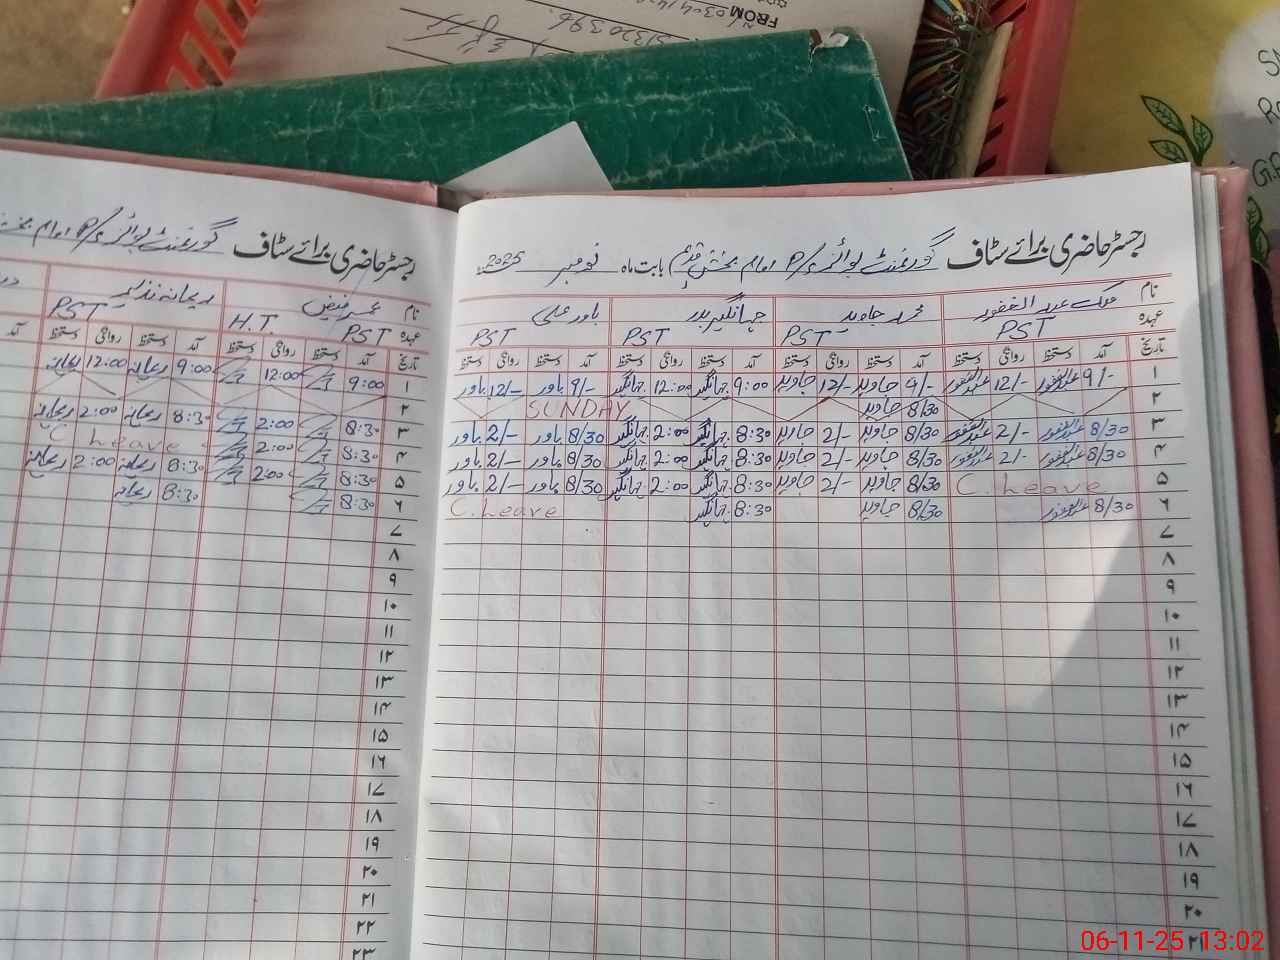 FROM
رجسٹر حاضری برائے سٹاف گورنمنٹ بوائز P/S امام بخش قدیم بابت ماہ نومبر 2025ء
نام ملک عبد الغفور محمد جاوید جہانگیر بدر یاور علی
عہدہ PST PST PST PST
تاریخ آمد دستخط روانگی دستخط آمد دستخط روانگی دستخط آمد دستخط روانگی دستخط آمد دستخط روانگی دستخط
۱ 9/- عبدالغفور 12/- عبدالغفور 9/- جاوید 12/- جاوید 9:00 جہانگیر 12:00 جہانگیر 9/- یاور 12/- یاور
۲ 8/30 جاوید SUNDAY
۳ 8/30 عبدالغفور 2/- عبدالغفور 8/30 جاوید 2/- جاوید 8:30 جہانگیر 2:00 جہانگیر 8/30 یاور 2/- یاور
۴ 8/30 عبدالغفور 2/- عبدالغفور 8/30 جاوید 2/- جاوید 8:30 جہانگیر 2:00 جہانگیر 8/30 یاور 2/- یاور
۵ C. Leave 8/30 جاوید 2/- جاوید 8:30 جہانگیر 2:00 جہانگیر 8/30 یاور 2/- یاور
۶ 8/30 عبدالغفور 8/30 جاوید 8:30 جہانگیر C. Leave
۷
۸
۹
۱۰
۱۱
۱۲
۱۳
۱۴
۱۵
۱۶
۱۷
۱۸
۱۹
۲۰
۲۱
رجسٹر حاضری برائے سٹاف گورنمنٹ بوائز P/S امام بخش
نام عمر فیض ریحانہ نذیر
عہدہ PST H.T. PST
تاریخ آمد دستخط روانگی دستخط آمد دستخط روانگی دستخط آمد
۱ 9:00 12:00 9:00 ریحانہ 12:00 ریحانہ
۲
۳ 8:30 2:00 8:30 ریحانہ 2:00 ریحانہ
۴ 8:30 2:00 C Leave
۵ 8:30 2:00 8:30 ریحانہ 2:00 ریحانہ
۶ 8:30 8:30 ریحانہ
۷
۸
۹
۱۰
۱۱
۱۲
۱۳
۱۴
۱۵
۱۶
۱۷
۱۸
۱۹
۲۰
۲۱
۲۲
۲۳
06-11-25 13:02